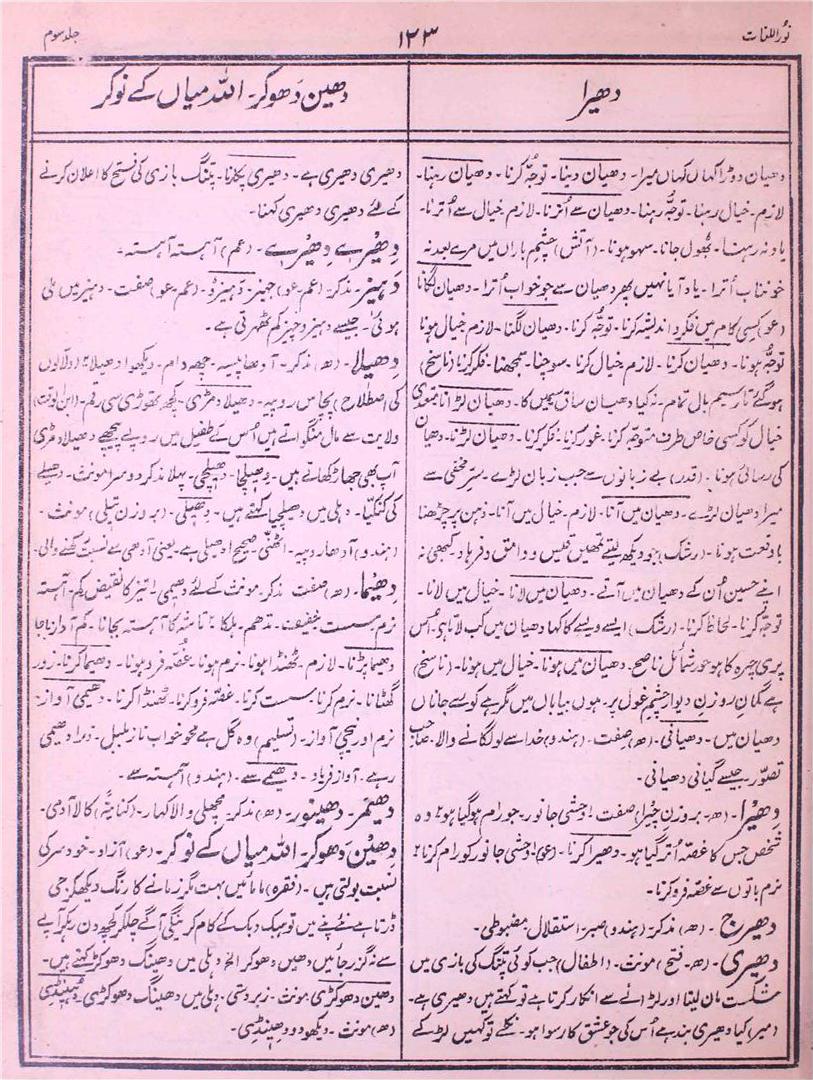 نورُ اللغات
۱۲۳
جلد سوم
دھیرا
دھیان دوڑا کہاں کہاں میرا۔ دھیان دینا۔ توجّہ کرنا۔ دھیان رہنا۔
لازم۔ خیال رہنا۔ توجُّہ رہنا۔ دھیان سے اُترنا۔ لازم خیال سے اُترنا۔
یاد نہ رہنا۔ بھُول جانا۔ سہو ہونا۔ (آتش) چشمِ یاراں میں مرے بعد نہ
خونناب اُترا۔ یاد آیا نہیں پھر دھیان سے جو خواب اُترا۔ دھیان لگانا
(عو) کِسی کام میں فکر و اندیشہ کرنا۔ توجّہ کرنا۔ دھیان لگنا۔ لازم خیال ہونا
توجُّہ ہونا۔ دھیان کرنا۔ لازم خیال کرنا۔ سوچنا۔ سمجھنا۔ فکر کرنا (ناسخ)
ہو گئے تار سیم بال تمام۔ نہ کیا دھیان ساقِ سیمیں کا۔ دھیان لڑانا متعدی
خیال کو کسی خاص طرف متوجّہ کرنا۔ غور کرنا۔ فکر کرنا۔ دھیان لڑنا۔ دھیان
کی رسائی ہونا۔ (قدر) بے زبانوں سے جب زبان لڑے۔ سرِّ مخفی سے
میرا دھیان لڑے۔ دھیان میں آنا۔ لازم۔ خیال میں آنا۔ ذہن پر چڑھنا
باوقعت ہونا۔ (رشک) جو دیکھ لیتے تمھیں قیس و وامق و فرہاد۔ کبھی نہ
اپنے حسین اُن کے دھیان میں آتے۔ دھیان میں لانا۔ خیال میں لانا۔
توجّہ کرنا۔ لحاظ کرنا۔ (رشک) ایسے ویسے کا کہا دھیان میں کب لاتا ہی اُس
پری چہرہ کا ہو حور شمائل ناصح۔ دھیان میں ہونا۔ خیال میں ہونا۔ (ناسخ)
ہے گمانِ روزنِ دیوار چشمِ غول پر۔ ہوں بیاباں میں مگر ہے کوئے جاناں
دھیان میں۔ دھیانی۔ (ھ) صفت۔ (ہندو) خدا سے لو لگانے والا۔ صاحب
تصوّر۔ جیسے گیانی دھیانی۔
دھیرا۔ (ھ۔ بروزن چیرا) صفت ۱ وحشی جانور۔ جو رام ہو گیا ہو ۲ وہ
شخص جس کا غصّہ اُتر گیا ہو۔ دھیرا کرنا۔ (عو) ۱ وحشی جانور کو رام کرنا ۲
نرم باتوں سے غصّہ فرو کرنا۔
دھیرج۔ (ھ) مذکر۔ (ہندو) صبر۔ استقلال۔ مضبوطی۔
دھیری۔ (ھ۔ فتح) مونث۔ (اطفال) جب کوئی پتنگ کی بازی میں
شکست مان لیتا اور لڑانے سے انکار کرتا ہے تو کہتے ہیں دھیری ہے۔
(میر) کیا دھیری بندہے اُس کی جو عشق کا رسوا ہو۔ نکلے تو کہیں لڑکے
دھین دَھوکر۔ اللہ میاں کے نوکر
دھیری دھیری ہے۔ دھیری پکارنا۔ پتنگ بازی کی فتح کا اعلان کرنے
کے لئے دھیری دھیری کہنا۔
دِھیرے دِھیرے۔ (عم) آہستہ آہستہ۔
دَہیز۔ مذکر۔ (عم۔ عو) جہیز۔ دَہیزو۔ (عم۔ عو) صفت۔ دہیز میں ملی
ہوئی۔ جیسے دہیزو چیز کم ٹھہرتی ہے۔
دھیلا۔ (ھ) مذکر۔ آدھا پیسہ۔ چھدام۔ دیکھو ادھیلا ۲ (دلالوں
کی اصطلاح) پچاس روپیہ۔ دھیلا دمڑی۔ کچھ تھوڑی سی رقم۔ (ابن الوقت)
ولایت سے مال منگواتے ہیں اُس کے طفیل میں روپے پیچھے دھیلا دمڑی
آپ بھی جھاڑ کھاتے ہیں۔ دھیلچا۔ دھیلچی۔ پہلا مذکر دوسرا مونث۔ دھیلے
کی کنکیّا۔ دہلی میں دھیلچا کہتے ہیں۔ دھیلی۔ (بروزن تیلی) مونث۔
(ہندو) آدھا روپیہ۔ اٹھنّی۔ صحیح ادھیلی ہے۔ یعنی آدھی سے نسبت رکھنے والی۔
دِھیما۔ (ھ) صفت مذکر۔ مونث کے لئے دھیمی ۱ تیز کا نقیض۔ کم۔ آہستہ
نرم۔ سست۔ خفیف۔ مدھم۔ ہلکا ۲ تاشہ کا آہستہ بجانا۔ کم آواز باجا
دھیما پڑنا۔ لازم۔ ٹھنڈا ہونا۔ نرم ہونا۔ غصّہ فرو ہونا۔ دھیما کرنا۔ زور
گھٹانا۔ نرم کرنا۔ سست کرنا۔ غصّہ فرو کرنا۔ ٹھنڈا کرنا۔ دھیمی آواز۔
نرم اور نیچی آواز۔ (تسلیم) وہ گل ہے محوِ خوابِ ناز بلبل۔ ذرا دھیمی
رہے۔ آوازِ فریاد۔ دھیمے سے۔ (ہندو) آہستہ سے۔
دھیمر۔ دھینور۔ (ھ) مذکر۔ مچھلی والا کہار۔ (کنایۃً) کالا آدمی۔
دھین دھوکر۔ اللہ میاں کے نوکر۔ (عو) آزاد۔ خودسر کی
نسبت بولتی ہیں۔ (فقرہ) مامائیں بہت مگر زمانے کا رنگ دیکھکر جی
ڈرتا ہے نئے پنے میں تو بھبک دبک کے کام کرینگی آگے چلکر کچھ دن رہکر آپے
سے نہ گزر جائیں دھیں دھوکر الخ دہلی میں دھینگ دھوکڑ کہتے ہیں۔
دھین دھوکڑی مونث۔ زبردستی۔ دہلی میں دھینگ دھوکڑی۔ دھینڈی
(ھ) مونث۔ دیکھو دودھینڈی۔